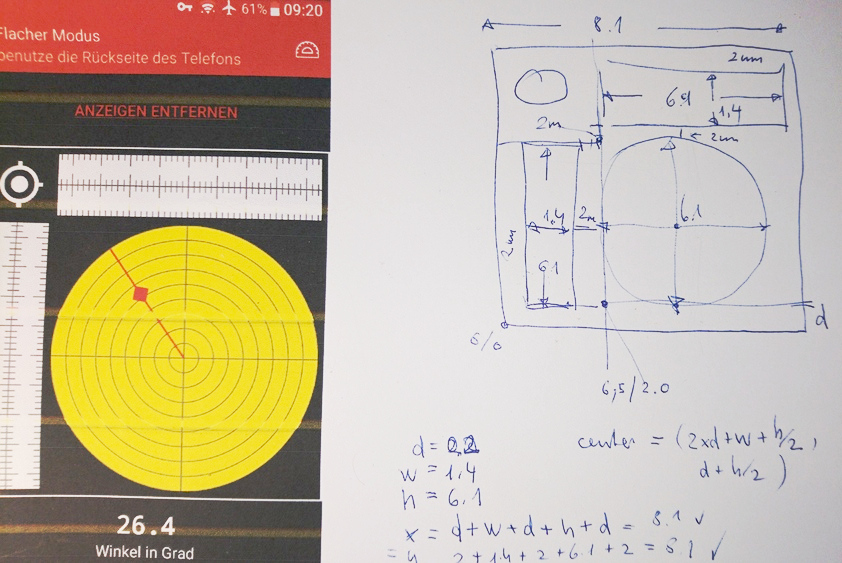 61% 09:20
Flacher Modus
benutze die Rückseite des Telefons
ANZEIGEN ENTFERNEN
26.4
Winkel in Grad
8.1
2mm
6.1
1,4
2m
2mm
1.4
2m
6.1
2mm
6.1
d
0/0
6,5/2.0
d = 0,2
w = 1,4
h = 6.1
center = (2xd+w+h/2,
d+h/2)
x = d+w+d+h+d = 8.1 ✓
= 2+1.4+2+6.1+2 = 8.1 ✓